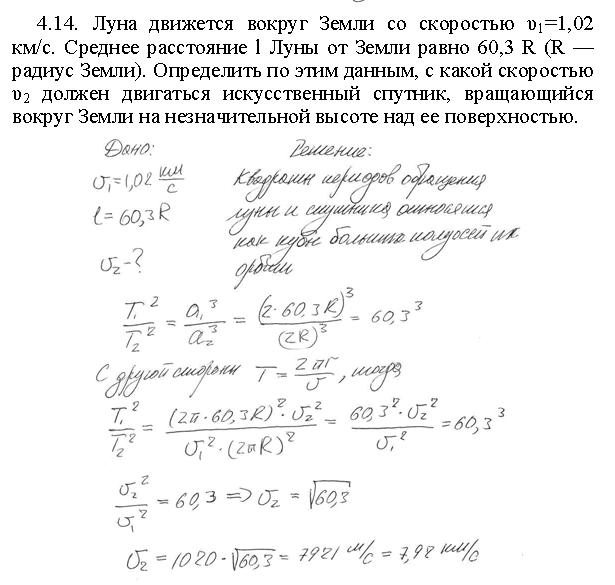 4.14. Луна движется вокруг Земли со скоростью υ₁=1,02
км/с. Среднее расстояние l Луны от Земли равно 60,3 R (R —
радиус Земли). Определить по этим данным, с какой скоростью
υ₂ должен двигаться искусственный спутник, вращающийся
вокруг Земли на незначительной высоте над ее поверхностью.
Дано: Решение:
υ₁=1,02 км/с Квадраты периодов обращения
l = 60,3 R луны и спутника относятся
как кубы больших полуосей их
υ₂ - ? орбит
T₁²/T₂² = a₁³/a₂³ = (2·60,3R)³/(2R)³ = 60,3³
С другой стороны T = 2πr/υ, тогда
T₁²/T₂² = (2π·60,3R)²·υ₂²/υ₁²·(2πR)² = 60,3²·υ₂²/υ₁² = 60,3³
υ₂²/υ₁² = 60,3 => υ₂ = √60,3
υ₂ = 1020·√60,3 = 7921 м/с = 7,92 км/с